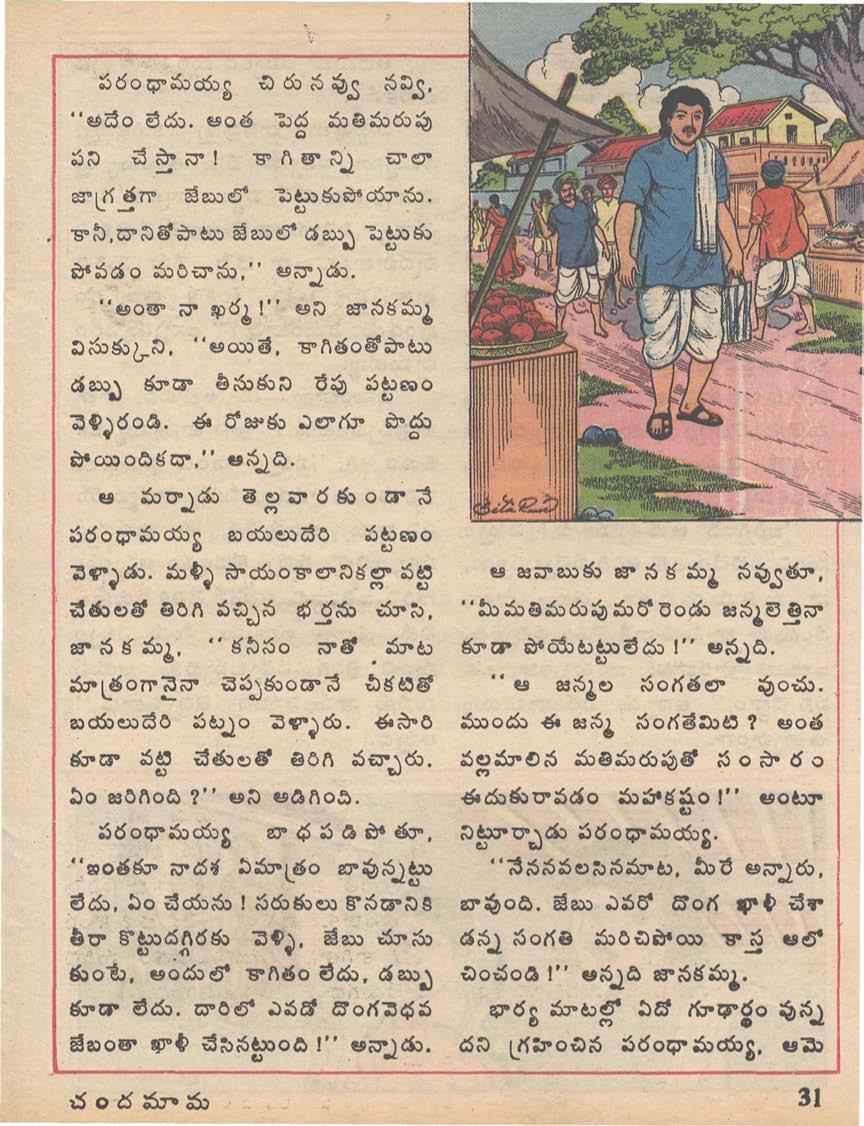 పరంధామయ్య చిరునవ్వు నవ్వి,
‘‘అదేం లేదు. అంత పెద్ద మతిమరుపు
పని చేస్తానా! కాగితాన్ని చాలా
జాగ్రత్తగా జేబులో పెట్టుకుపోయాను.
కానీ,దానితోపాటు జేబులో డబ్బు పెట్టుకు
పోవడం మరిచాను,’’ అన్నాడు.
‘‘అంతా నా ఖర్మ!’’ అని జానకమ్మ
విసుక్కుని, ‘‘అయితే, కాగితంతోపాటు
డబ్బు కూడా తీసుకుని రేపు పట్టణం
వెళ్ళిరండి. ఈ రోజుకు ఎలాగూ పొద్దు
పోయిందికదా,’’ అన్నది.
ఆ మర్నాడు తెల్లవారకుండానే
పరంధామయ్య బయలుదేరి పట్టణం
వెళ్ళాడు. మళ్ళీ సాయంకాలానికల్లా వట్టి
చేతులతో తిరిగి వచ్చిన భర్తను చూసి,
జానకమ్మ, ‘‘కనీసం నాతో మాట
మాత్రంగానైనా చెప్పకుండానే చీకటితో
బయలుదేరి పట్నం వెళ్ళారు. ఈసారి
కూడా వట్టి చేతులతో తిరిగి వచ్చారు.
ఏం జరిగింది?’’ అని అడిగింది.
పరంధామయ్య బాధపడిపోతూ,
‘‘ఇంతకూ నాదశ ఏమాత్రం బావున్నట్టు
లేదు, ఏం చేయను! సరుకులు కొనడానికి
తీరా కొట్టుదగ్గిరకు వెళ్ళి, జేబు చూసు
కుంటే, అందులో కాగితం లేదు, డబ్బు
కూడా లేదు. దారిలో ఎవడో దొంగవెధవ
జేబంతా ఖాళీ చేసినట్టుంది!’’ అన్నాడు.
ఆ జవాబుకు జానకమ్మ నవ్వుతూ,
‘‘మీమతిమరుపుమరో రెండు జన్మలెత్తినా
కూడా పోయేటట్టులేదు!’’ అన్నది.
‘‘ఆ జన్మల సంగతలా వుంచు.
ముందు ఈ జన్మ సంగతేమిటి? అంత
వల్లమాలిన మతిమరుపుతో సంసారం
ఈదుకురావడం మహాకష్టం!’’ అంటూ
నిట్టూర్చాడు పరంధామయ్య.
‘‘నేననవలసినమాట, మీరే అన్నారు,
బావుంది. జేబు ఎవరో దొంగ ఖాళీ చేశా
డన్న సంగతి మరిచిపోయి కాస్త ఆలో
చించండి!’’ అన్నది జానకమ్మ.
భార్య మాటల్లో ఏదో గూఢార్థం వున్న
దని గ్రహించిన పరంధామయ్య, ఆమె
చందమామ
31